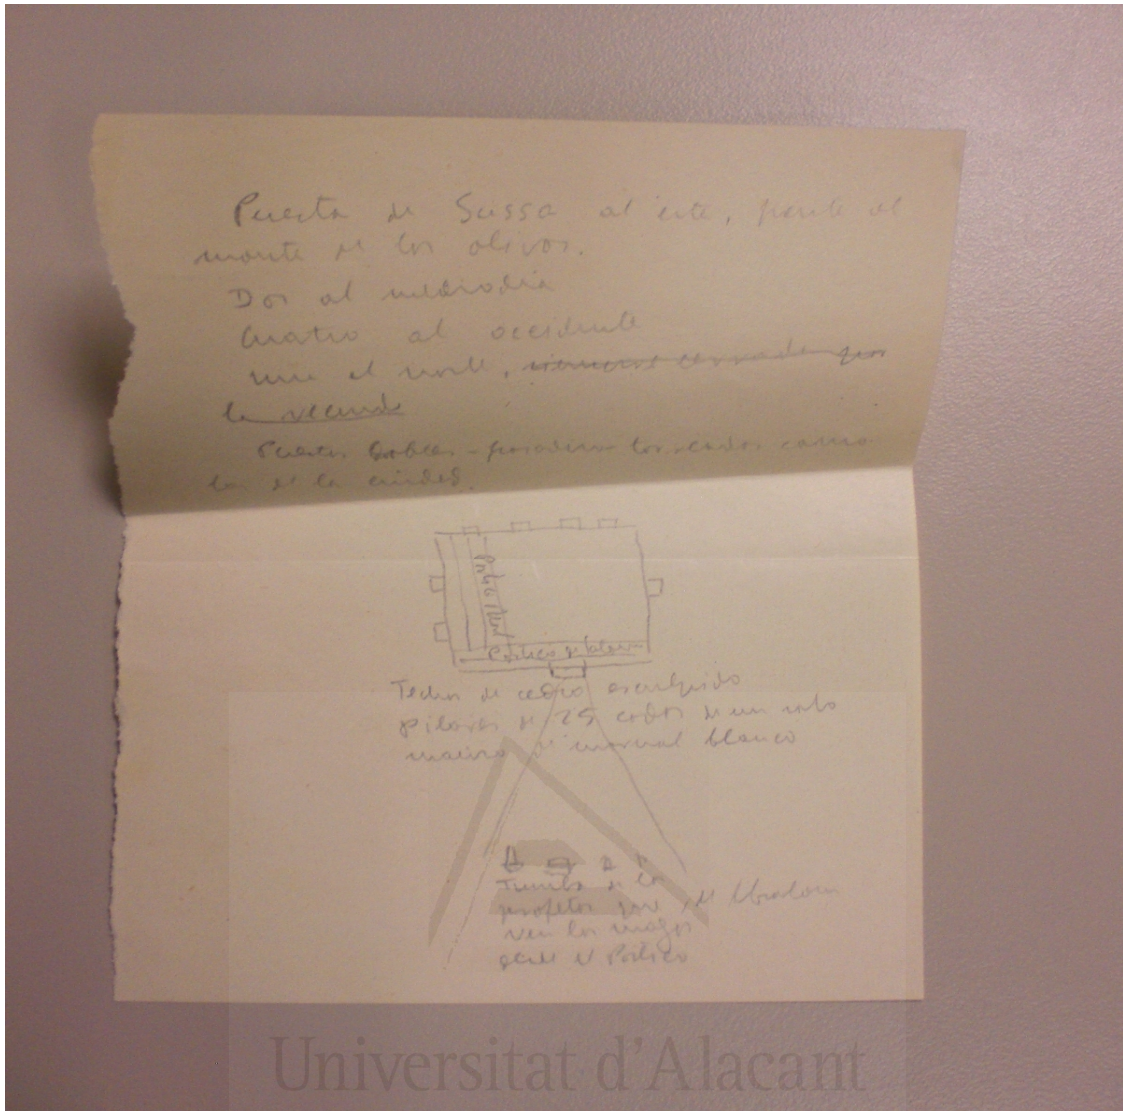 Puerta de Sussa al este, frente al
monte de los olivos.
Dos al mediodia
Cuatro al occidente
una al norte,
la
Puertas dobles - posadizos torreados como
las de la ciudad.
Portico Real
Portico de Salomon
Techos de cedro esculpido
pilares de 25 codos de un solo
macizo de marmol blanco
Tumba de los
profetas que, de Absalom
ven los magos
desde el Portico
Universitat d'Alacant